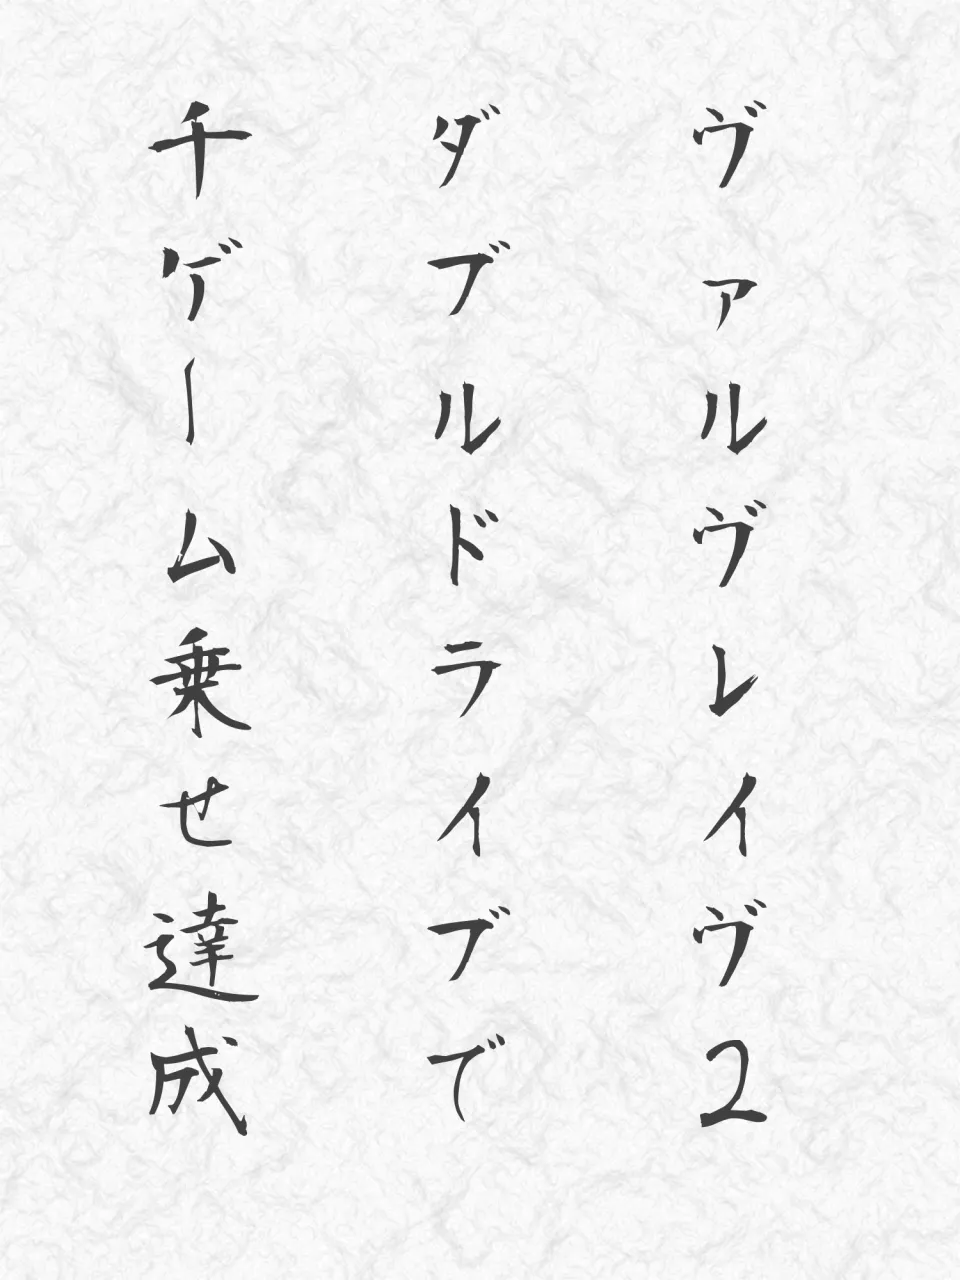 ヴァルヴレイヴ2
ダブルドライブで
千ゲーム乗せ達成